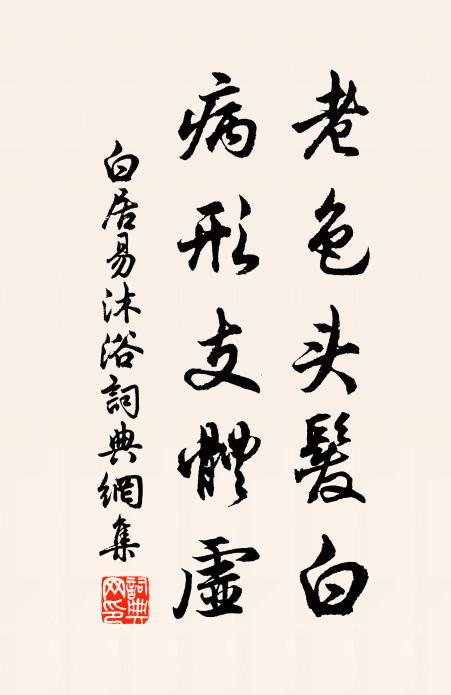 老色头髮白
病形支體虛
白居易沐浴詞典網集
詞典网印